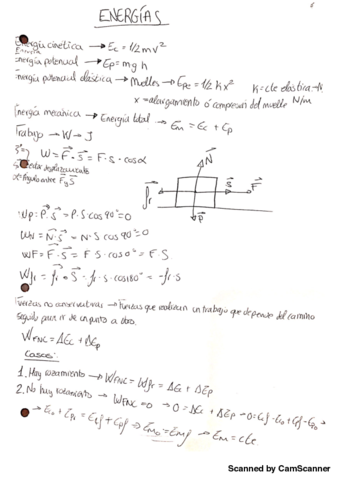 ENERGÍAS
Energía cinética → Ec = 1/2 mv²
Energía potencial → Ep = m g h
Energía potencial elástica → Muelles → Epe = 1/2 K x² K = cte elástica → N/m
x = alargamiento ó compresión del muelle
Energía mecánica → Energía total → Em = Ec + Ep
Trabajo → W → J
W = F · S = F · s · cosα
vector desplazamiento
α: ángulo entre F y S
N
fr
S
F
P
Wp = P · S = P · S · cos 90° = 0
WN = N · S = N · S cos 90° = 0
WF = F · S = F · S · cos 0° = F · S
Wfr = fr · S = fr · s · cos180° = -fr · s
Fuerzas no conservativas → Fuerzas que realizan un trabajo que depende del camino
seguido para ir de un punto a otro.
WFNC = ΔEc + ΔEp
Casos:
1. Hay rozamiento → WFNC = Wfr = ΔEc + ΔEp
2. No hay rozamiento → WFNC = 0 → 0 = ΔEc + ΔEp → 0 = Ecf - Ec0 + Epf - Ep0 →
→ Ec0 + Ep0 = Ecf + Epf → Em0 = Emf → Em = cte
Scanned by CamScanner